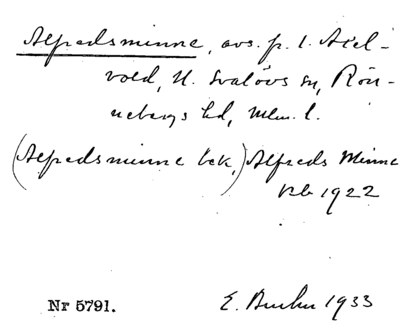 Alfredsminne, avs. fr. 1. Axel-
vold, N. Svalövs sn, Rön-
nebergs hd, Mlm. l.
(Alfredsminne bek.) Alfreds Minne
rb 1922
Nr 5791. E. 1933